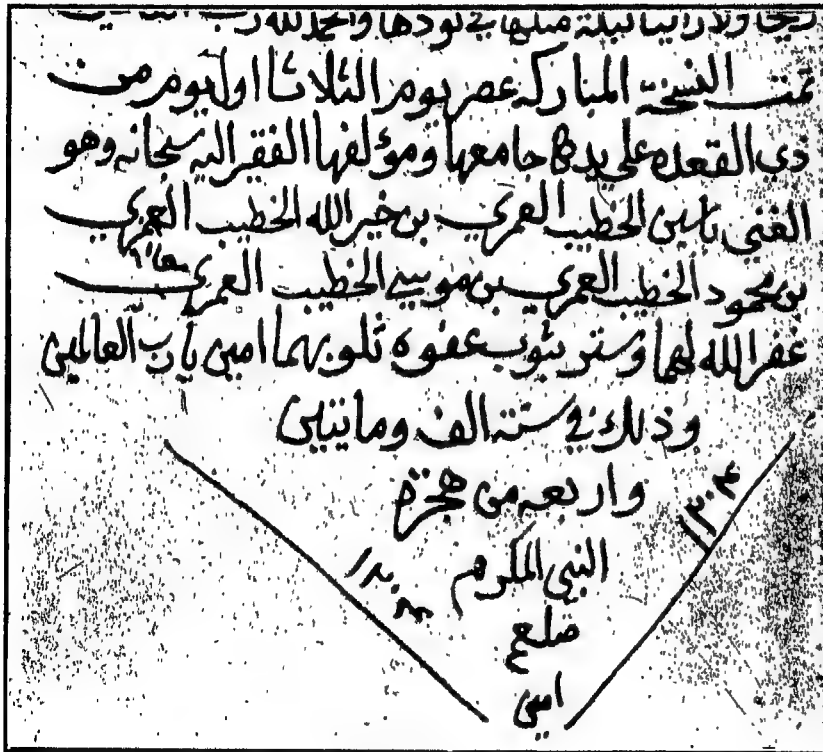 ريحا ولا راينا ليلة مثلها في نودها والحمد لله رب العالمين
تمت النسخة المباركه عصر يوم الثلاثا اول يوم من
ذي القعده على يد جامعها ومؤلفها الفقير اليه سبحانه وهو
الغني ياسين الخطيب العمري بن خير الله الخطيب العمري
بن محمود الخطيب العمري بن موسى الخطيب العمري
غفر الله لهما وستر بثوب عفوه ذنوبهما امين يا رب العالمين
وذلك في سنة الف وماتيين
واربعه من هجرة
النبي المكرم
صلعم
امين
١٢٠٤
١٢٠٤